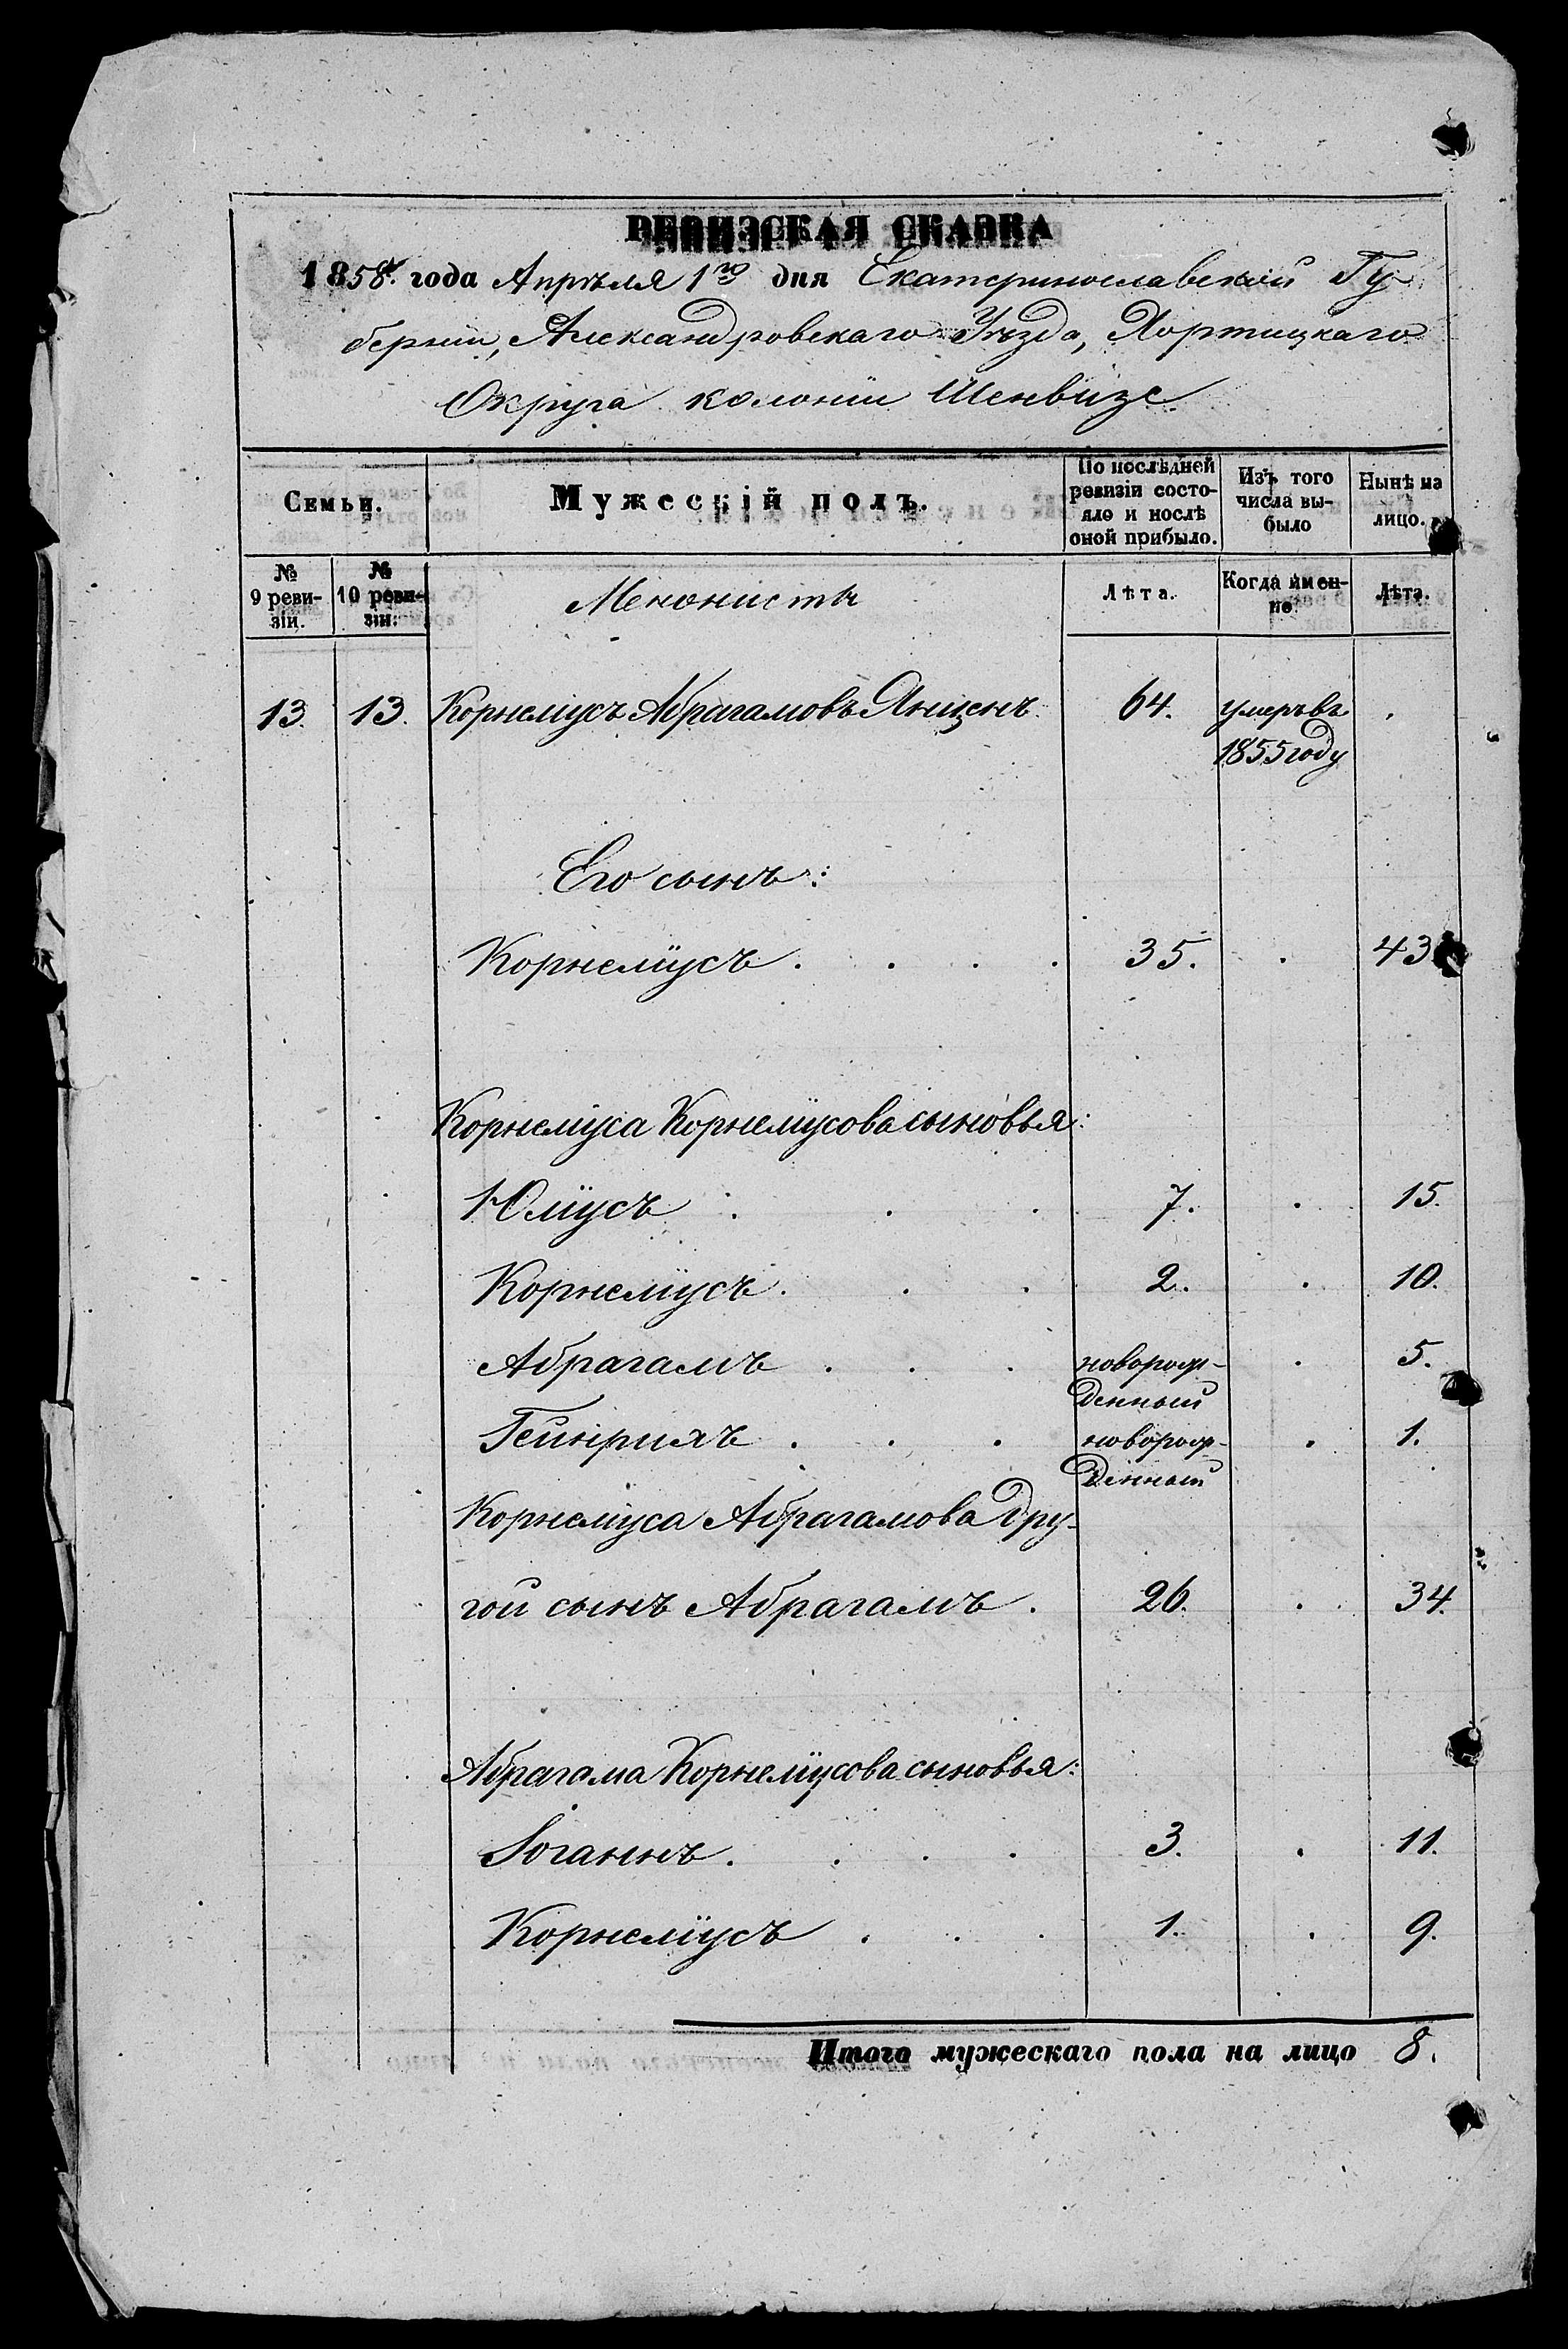 РЕВИЗСКАЯ СКАЗКА
1858г. года Апрѣля 1го дня Екатеринославской Гу-
берніи, Александровскаго Уѣзда, Хортицкаго
Округа колоніи Шенвизе
Семьи.
Мужескій полъ.
По послѣдней ревизіи состо-
яло и послѣ оной прибыло.
Изъ того числа вы-
было
Ныне на лицо.
№ 9 реви-
зіи.
№ 10 реви-
зіи.
Менонисты
Лѣта.
Когда имен-
но.
Лѣта.
13. 13. Корнеліусъ Абрагамовъ Янценъ 64. умеръ въ
1855 году
Его сынъ:
Корнеліусъ 35. 43.
Корнеліуса Корнеліусова сыновья:
Юліусъ 7. 15.
Корнеліусъ 2. 10.
Абрагамъ новорож-
денный 5.
Гейнрихъ новорож-
денный 1.
Корнеліуса Абрагамова дру-
гой сынъ Абрагамъ 26. 34.
Абрагама Корнеліусова сыновья:
Іоганнъ 3. 11.
Корнеліусъ 1. 9.
Итого мужескаго пола на лицо 8.